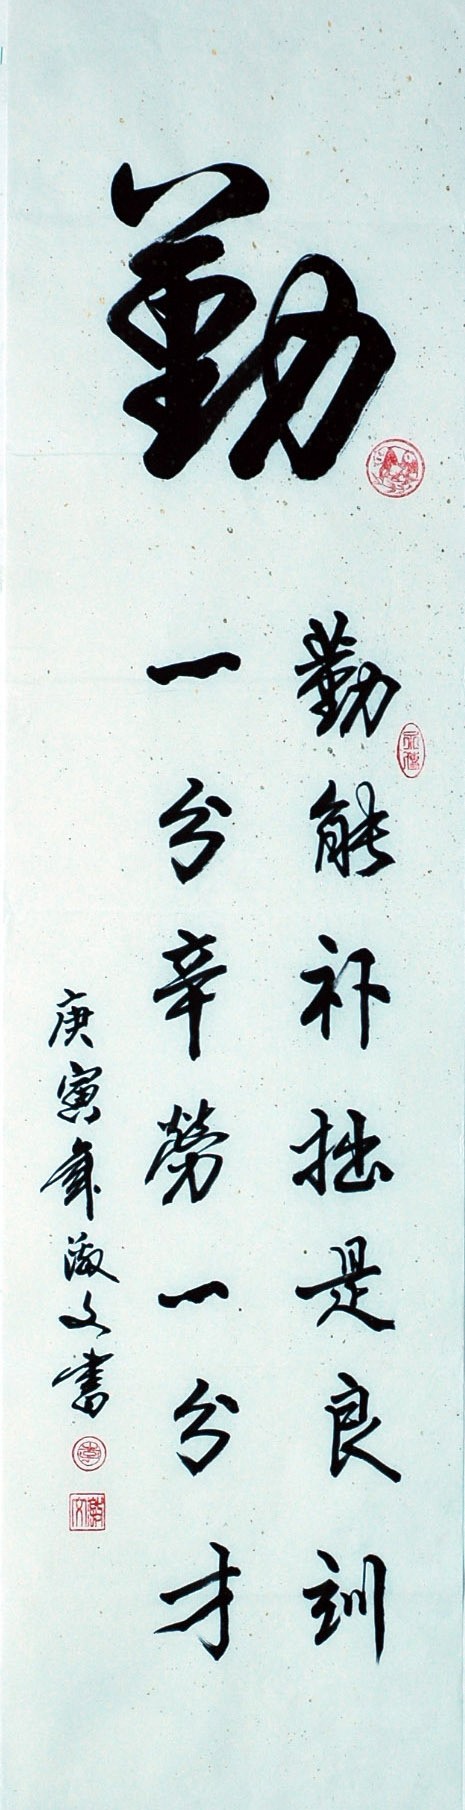 勤
勤能补拙是良训
一分辛勞一分才
庚寅年文書